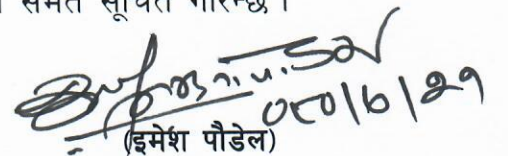 समेत सूचित गरिन्छ ।
०८०/७/२१
(इमेश पौडेल)